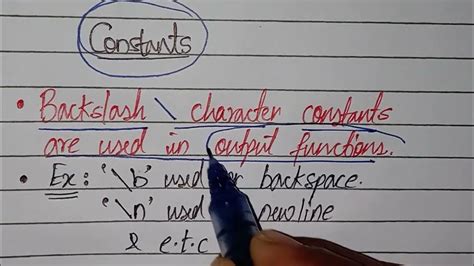 Constants
• Backslash \ character constants
are used in output functions.
• Ex: '\b' used for backspace.
'\n' used newline
& e.t.c